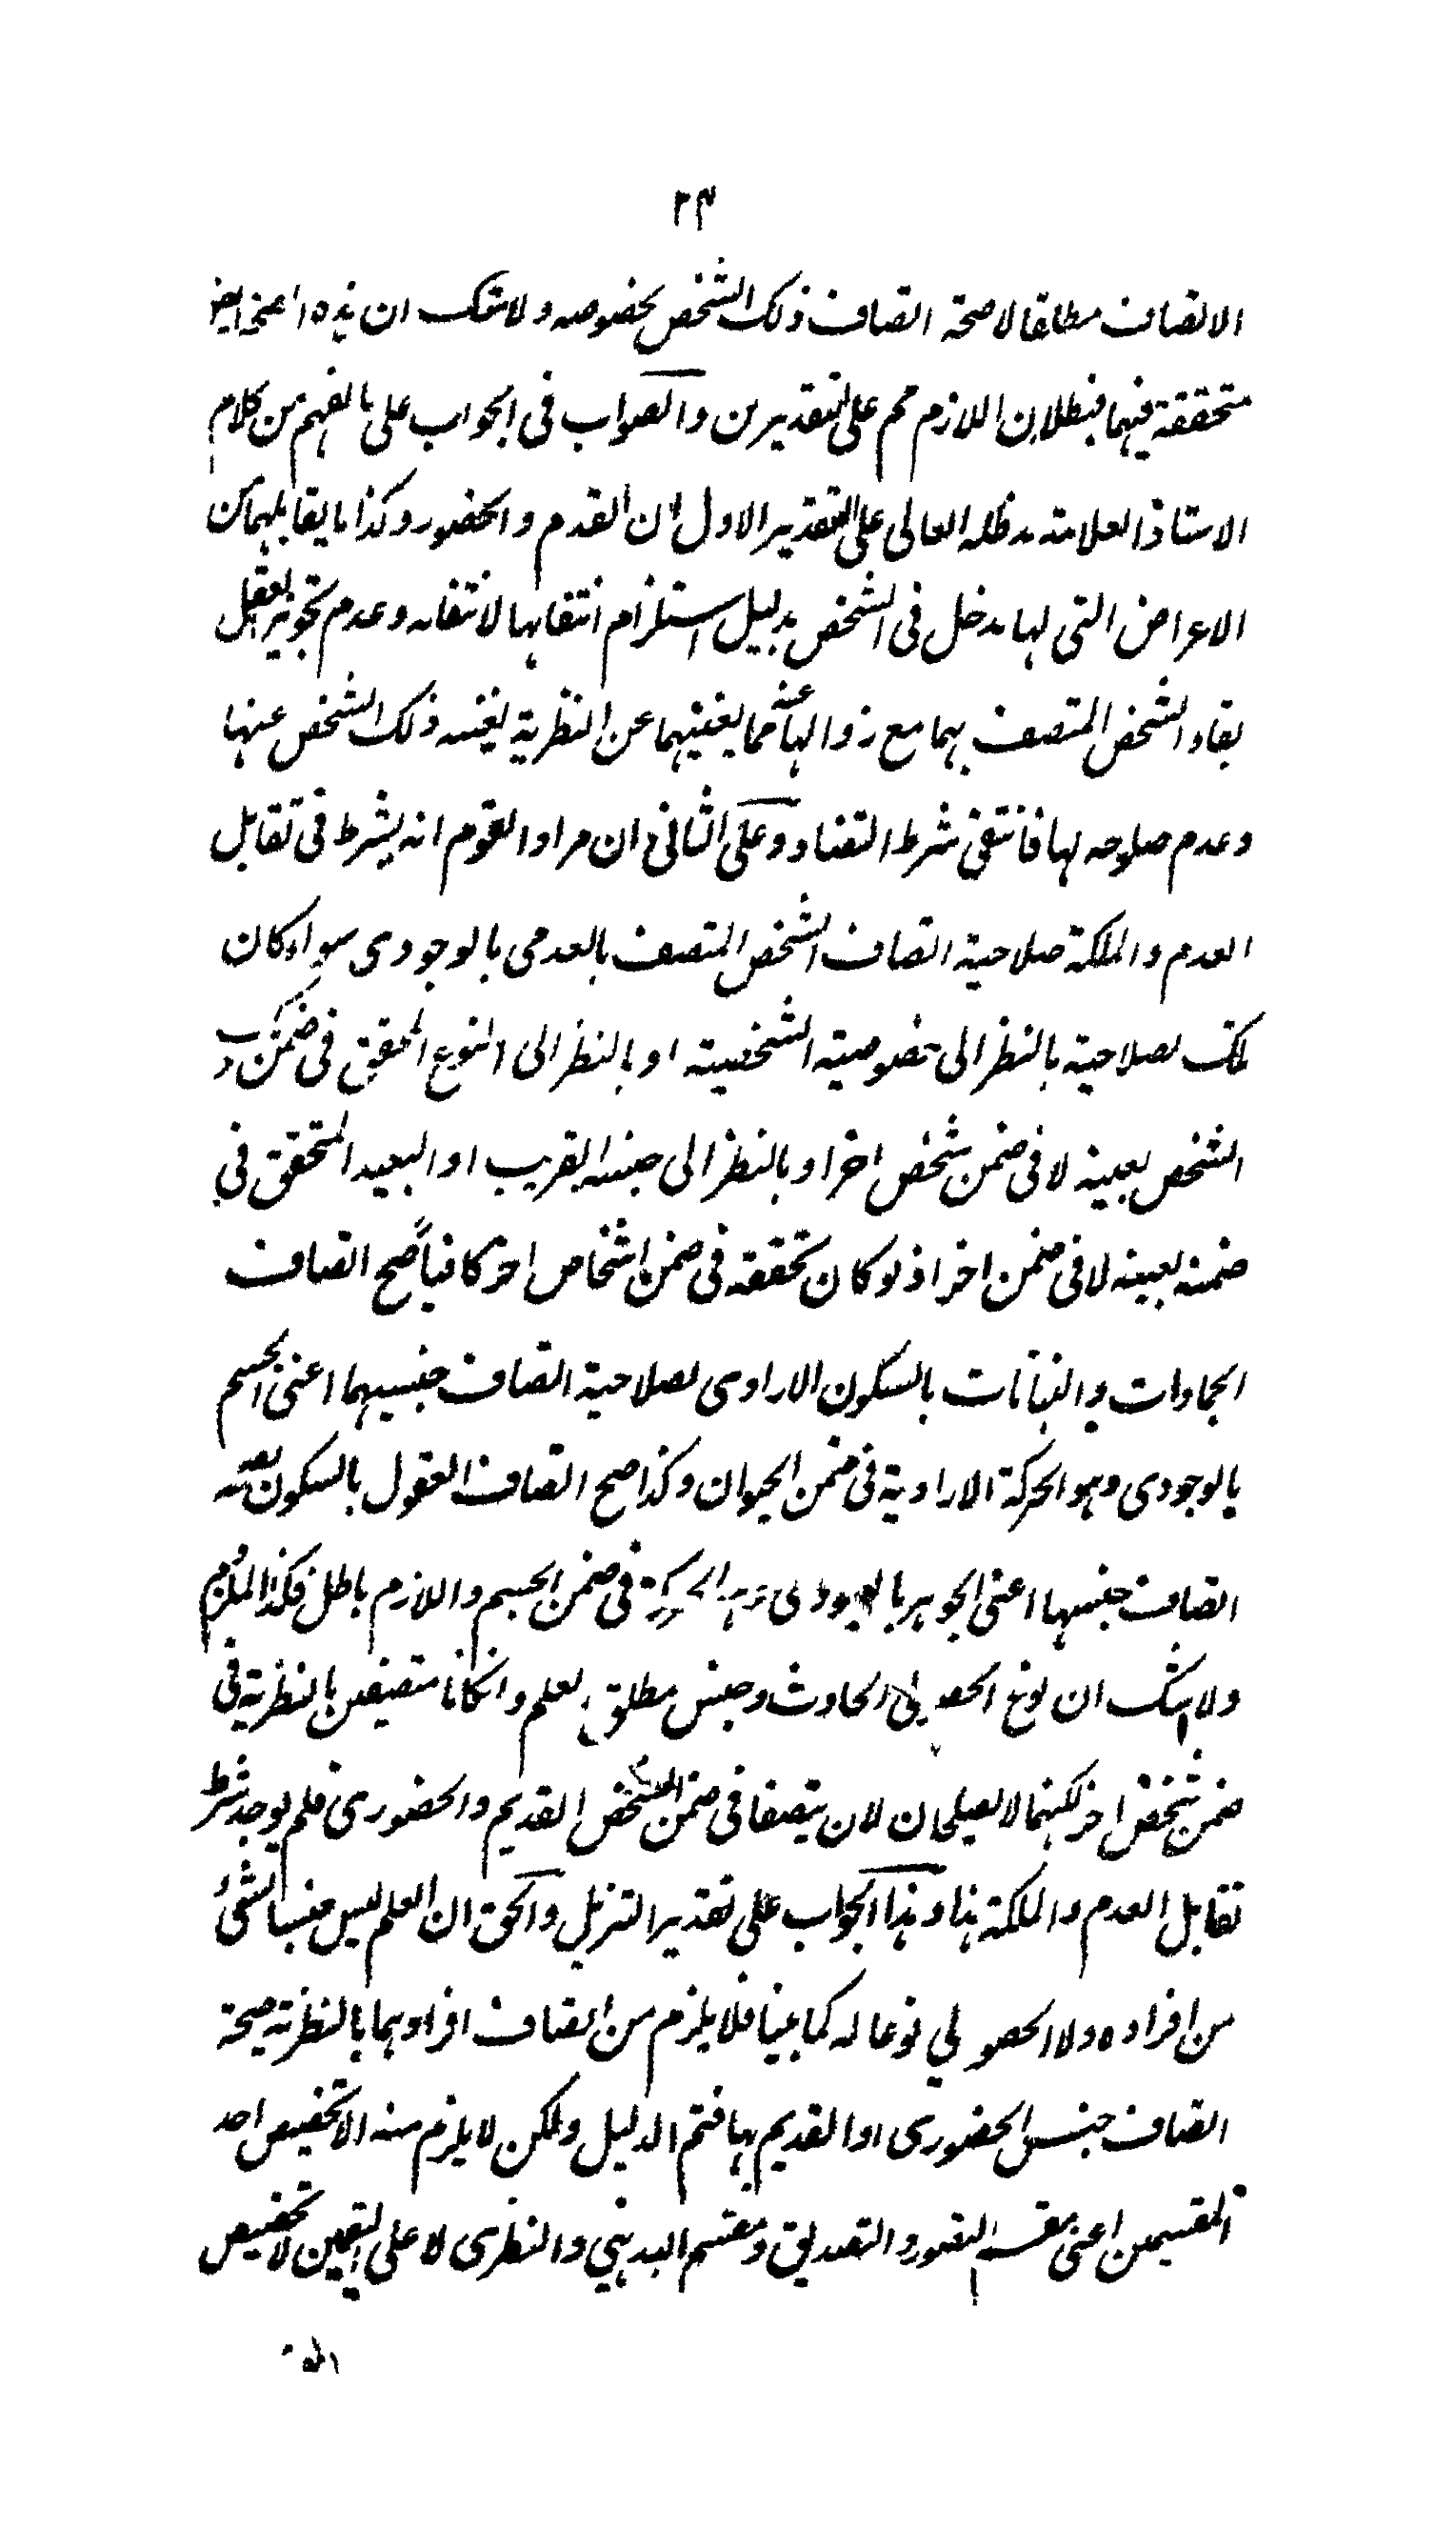 ٢٤
الاتصاف مطلقا لا صحة اتصاف ذلك الشخص بخصوصه ولا شك ان هذه اعنى ايض
متحققة فيهما فبطلان اللازم مم على التقديرين والصواب فى الجواب على ما افهم من كلام
الاستاذ العلامة مدظله العالى على التقدير الاول ان القدم والحضور وكذا ما يقابلهما من
الاعراض التى لها مدخل فى الشخص بدليل استلزام انتفائها لانتفائه وعدم تجويز العقل
بقاء الشخص المتصف بهما مع زوالها عنه فما يغنيهما عن النظرية يغنيه ذلك الشخص عنها
وعدم صلوحه لها فانتفى شرط التضاد وعلى الثانى ان مراد القوم انه يشرط فى تقابل
العدم والملكة صلاحية اتصاف الشخص المتصف بالعدمى بالوجودى سواء كان
تلك الصلاحية بالنظر الى خصوصيته الشخصية او بالنظر الى النوع المحقق فى ضمن ذلك
الشخص بعينه لا فى ضمن شخص اخر او بالنظر الى جنسه القريب او البعيد المتحقق فى
ضمنه بعينه لا فى ضمن اخر اذ لو كان تحققه فى ضمن اشخاص اخر كافيا صح اتصاف
الجمادات والنباتات بالسكون الارادى لصلاحية اتصاف جنسيهما اعنى الجسم
بالوجودى وهو الحركة الارادية فى ضمن الحيوان وكذا صح اتصاف العقول بالسكون لصحة
اتصاف جنسها اعنى الجوهر بالوجودى وهو الحركة فى ضمن الجسم واللازم باطل فكذا الملزوم
ولا شك ان نوع الحصولى الحادث وجنس مطلق العلم وانكانا متصفين بالنظرية فى
ضمن شخص اخر لكنهما لا يصلحان لان يتصفا فى ضمن الشخص القديم والحضورى فلم يوجد شرط
تقابل العدم والملكة هذا وهذا الجواب على تقدير التنزيل والحق ان العلم ليس جنسا لشئ
من افراده ولا الحصولي نوعا له كما بينا فلا يلزم من اتصاف افرادهما بالنظرية صحة
اتصاف جنس الحضورى او القديم بها فتم الدليل ولكن لا يلزم منه الا تخصيص احد
المقسمين اعنى مقسم التصور والتصديق ومقسم البديهي والنظرى لا على التعيين لا تخصيص